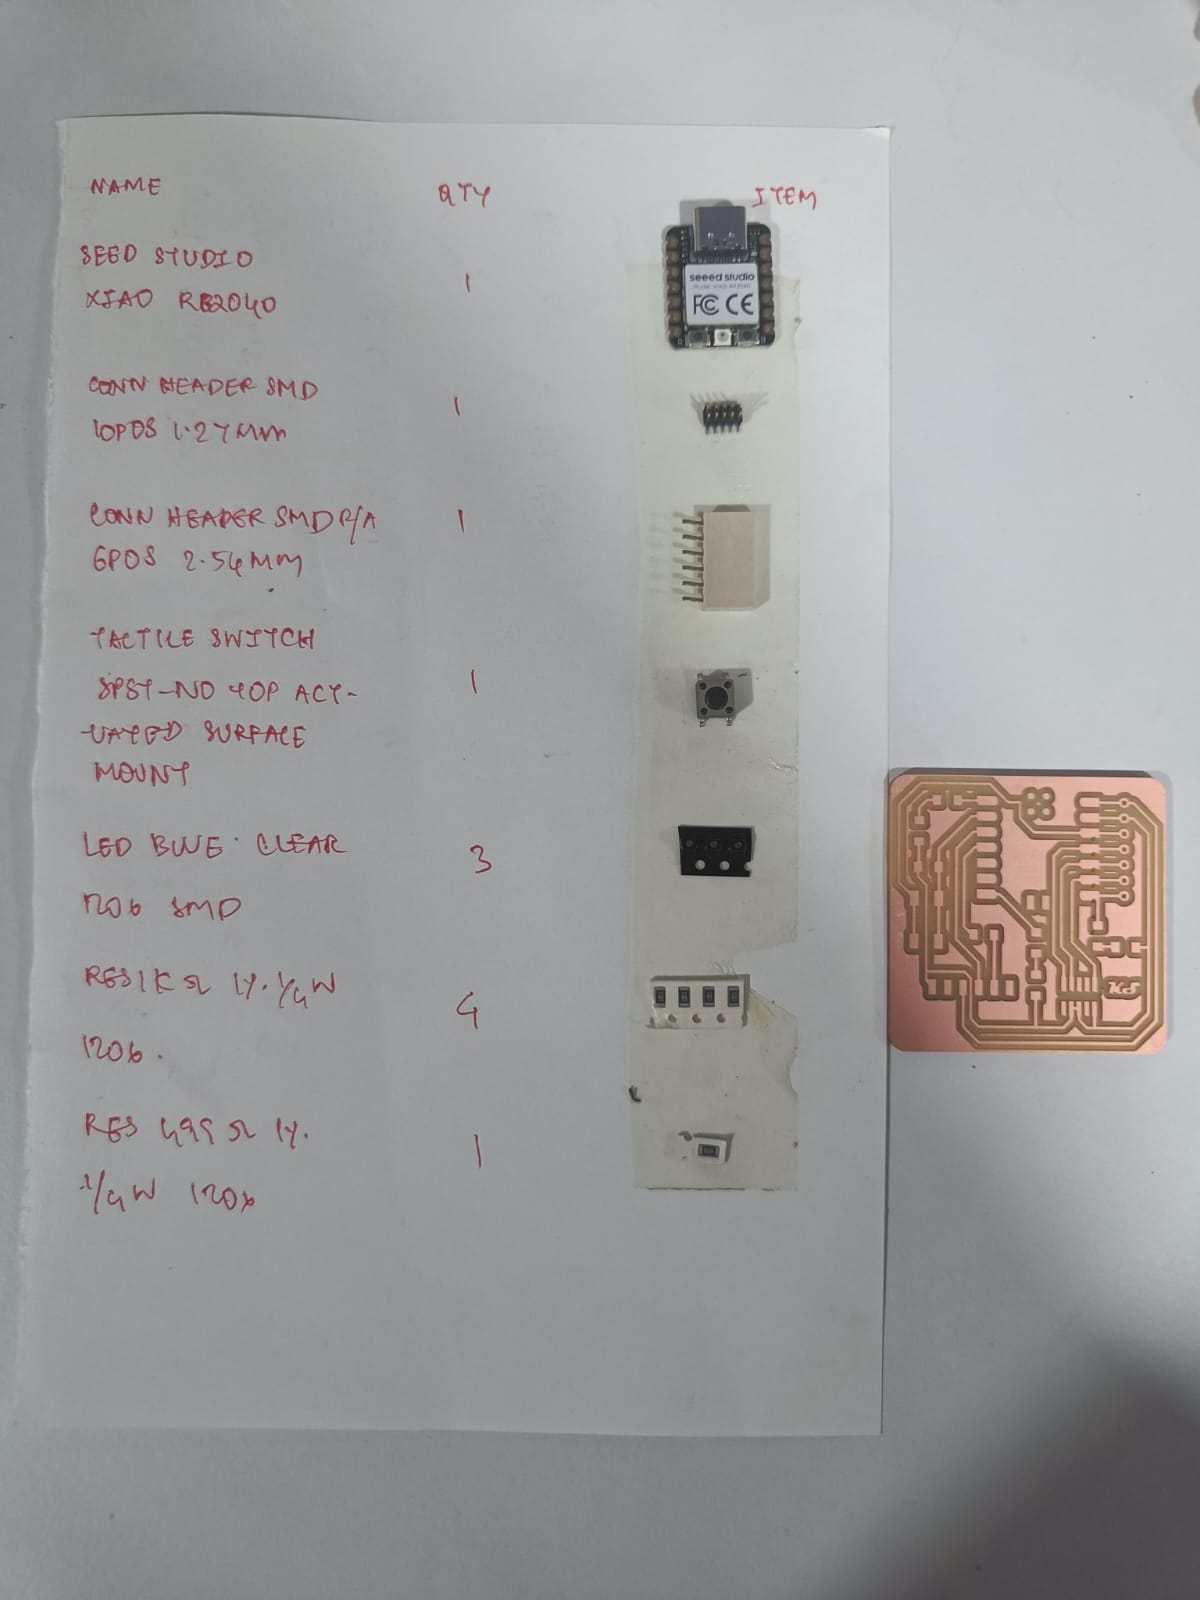 NAME QTY ITEM
SEED STUDIO
XIAO RP2040 1
seeed studio
FC CE
CONN HEADER SMD
10POS 1.27MM 1
CONN HEADER SMD R/A 1
6POS 2.54MM
TACTILE SWITCH
SPST-NO TOP ACT- 1
-UATED SURFACE
MOUNT
LED BLUE CLEAR 3
1206 SMD
RES 1K Ω 1%. 1/4W 4
1206.
RES 499 Ω 1%. 1
1/4W 1206
KS